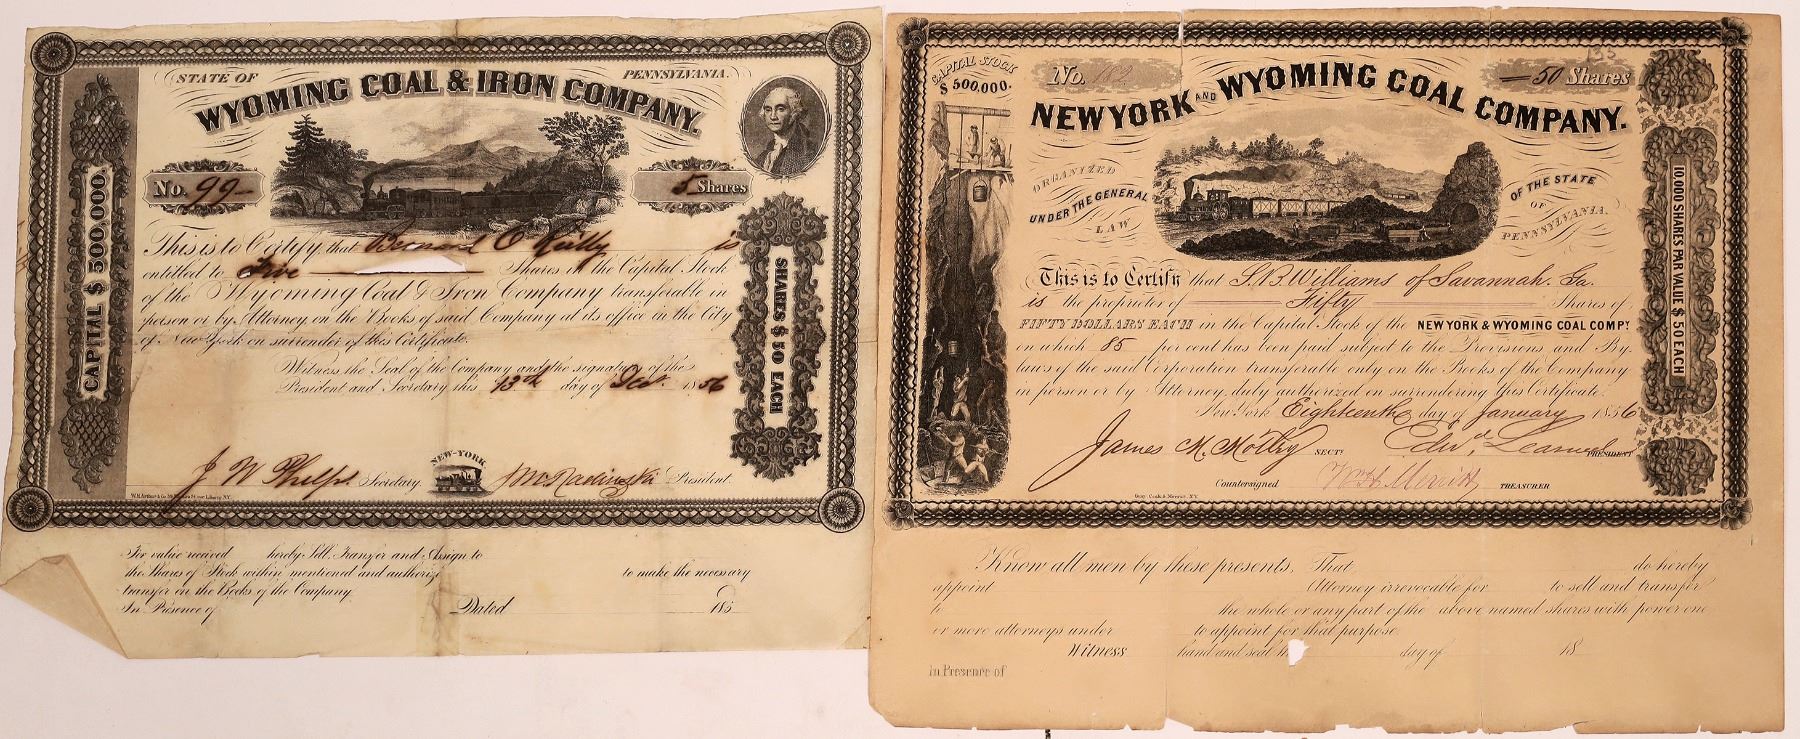 STATE OF PENNSYLVANIA.
WYOMING COAL & IRON COMPANY.
No. 99 5 Shares
CAPITAL $ 500,000.
SHARES $ 50 EACH
This is to Certify that Bernard O Reilly is
entitled to Five Shares in the Capital Stock
of the Wyoming Coal & Iron Company transferable in
person or by Attorney, on the Books of said Company at its office in the City
of New York on surrender of this Certificate.
Witness the Seal of the Company and the signature of the
President and Secretary this 13th day of Dec. 1856
NEW-YORK
J W Phelps Secretary. President.
For value received hereby Sell, Transfer and Assign to
the Shares of Stock within mentioned and authorize to make the necessary
transfer on the Books of the Company.
In Presence of Dated 185
CAPITAL STOCK
$ 500,000.
No. 182 50 Shares
133
NEW YORK AND WYOMING COAL COMPANY.
ORGANIZED
UNDER THE GENERAL
LAW
OF THE STATE
OF
PENNSYLVANIA.
10,000 SHARES PAR VALUE $ 50 EACH
This is to Certify that S. B. Williams of Savannah, Ga.
is the proprietor of Fifty Shares of
FIFTY DOLLARS EACH in the Capital Stock of the NEW YORK & WYOMING COAL COMPY.
on which 85 per cent has been paid subject to the Provisions and By-
laws of the said Corporation transferable only on the Books of the Company
in person or by Attorney, duly authorized on surrendering this Certificate.
New York Eighteenth day of January 1856
James M. Motley SECTY. Edwd. Learned PRESIDENT
Countersigned Merritt TREASURER
Know all men by these presents, That do hereby
appoint Attorney irrevocable for to sell and transfer
to the whole or any part of the above named shares with power one
or more attorneys under to appoint for that purpose.
Witness hand and seal day of 18
In Presence of